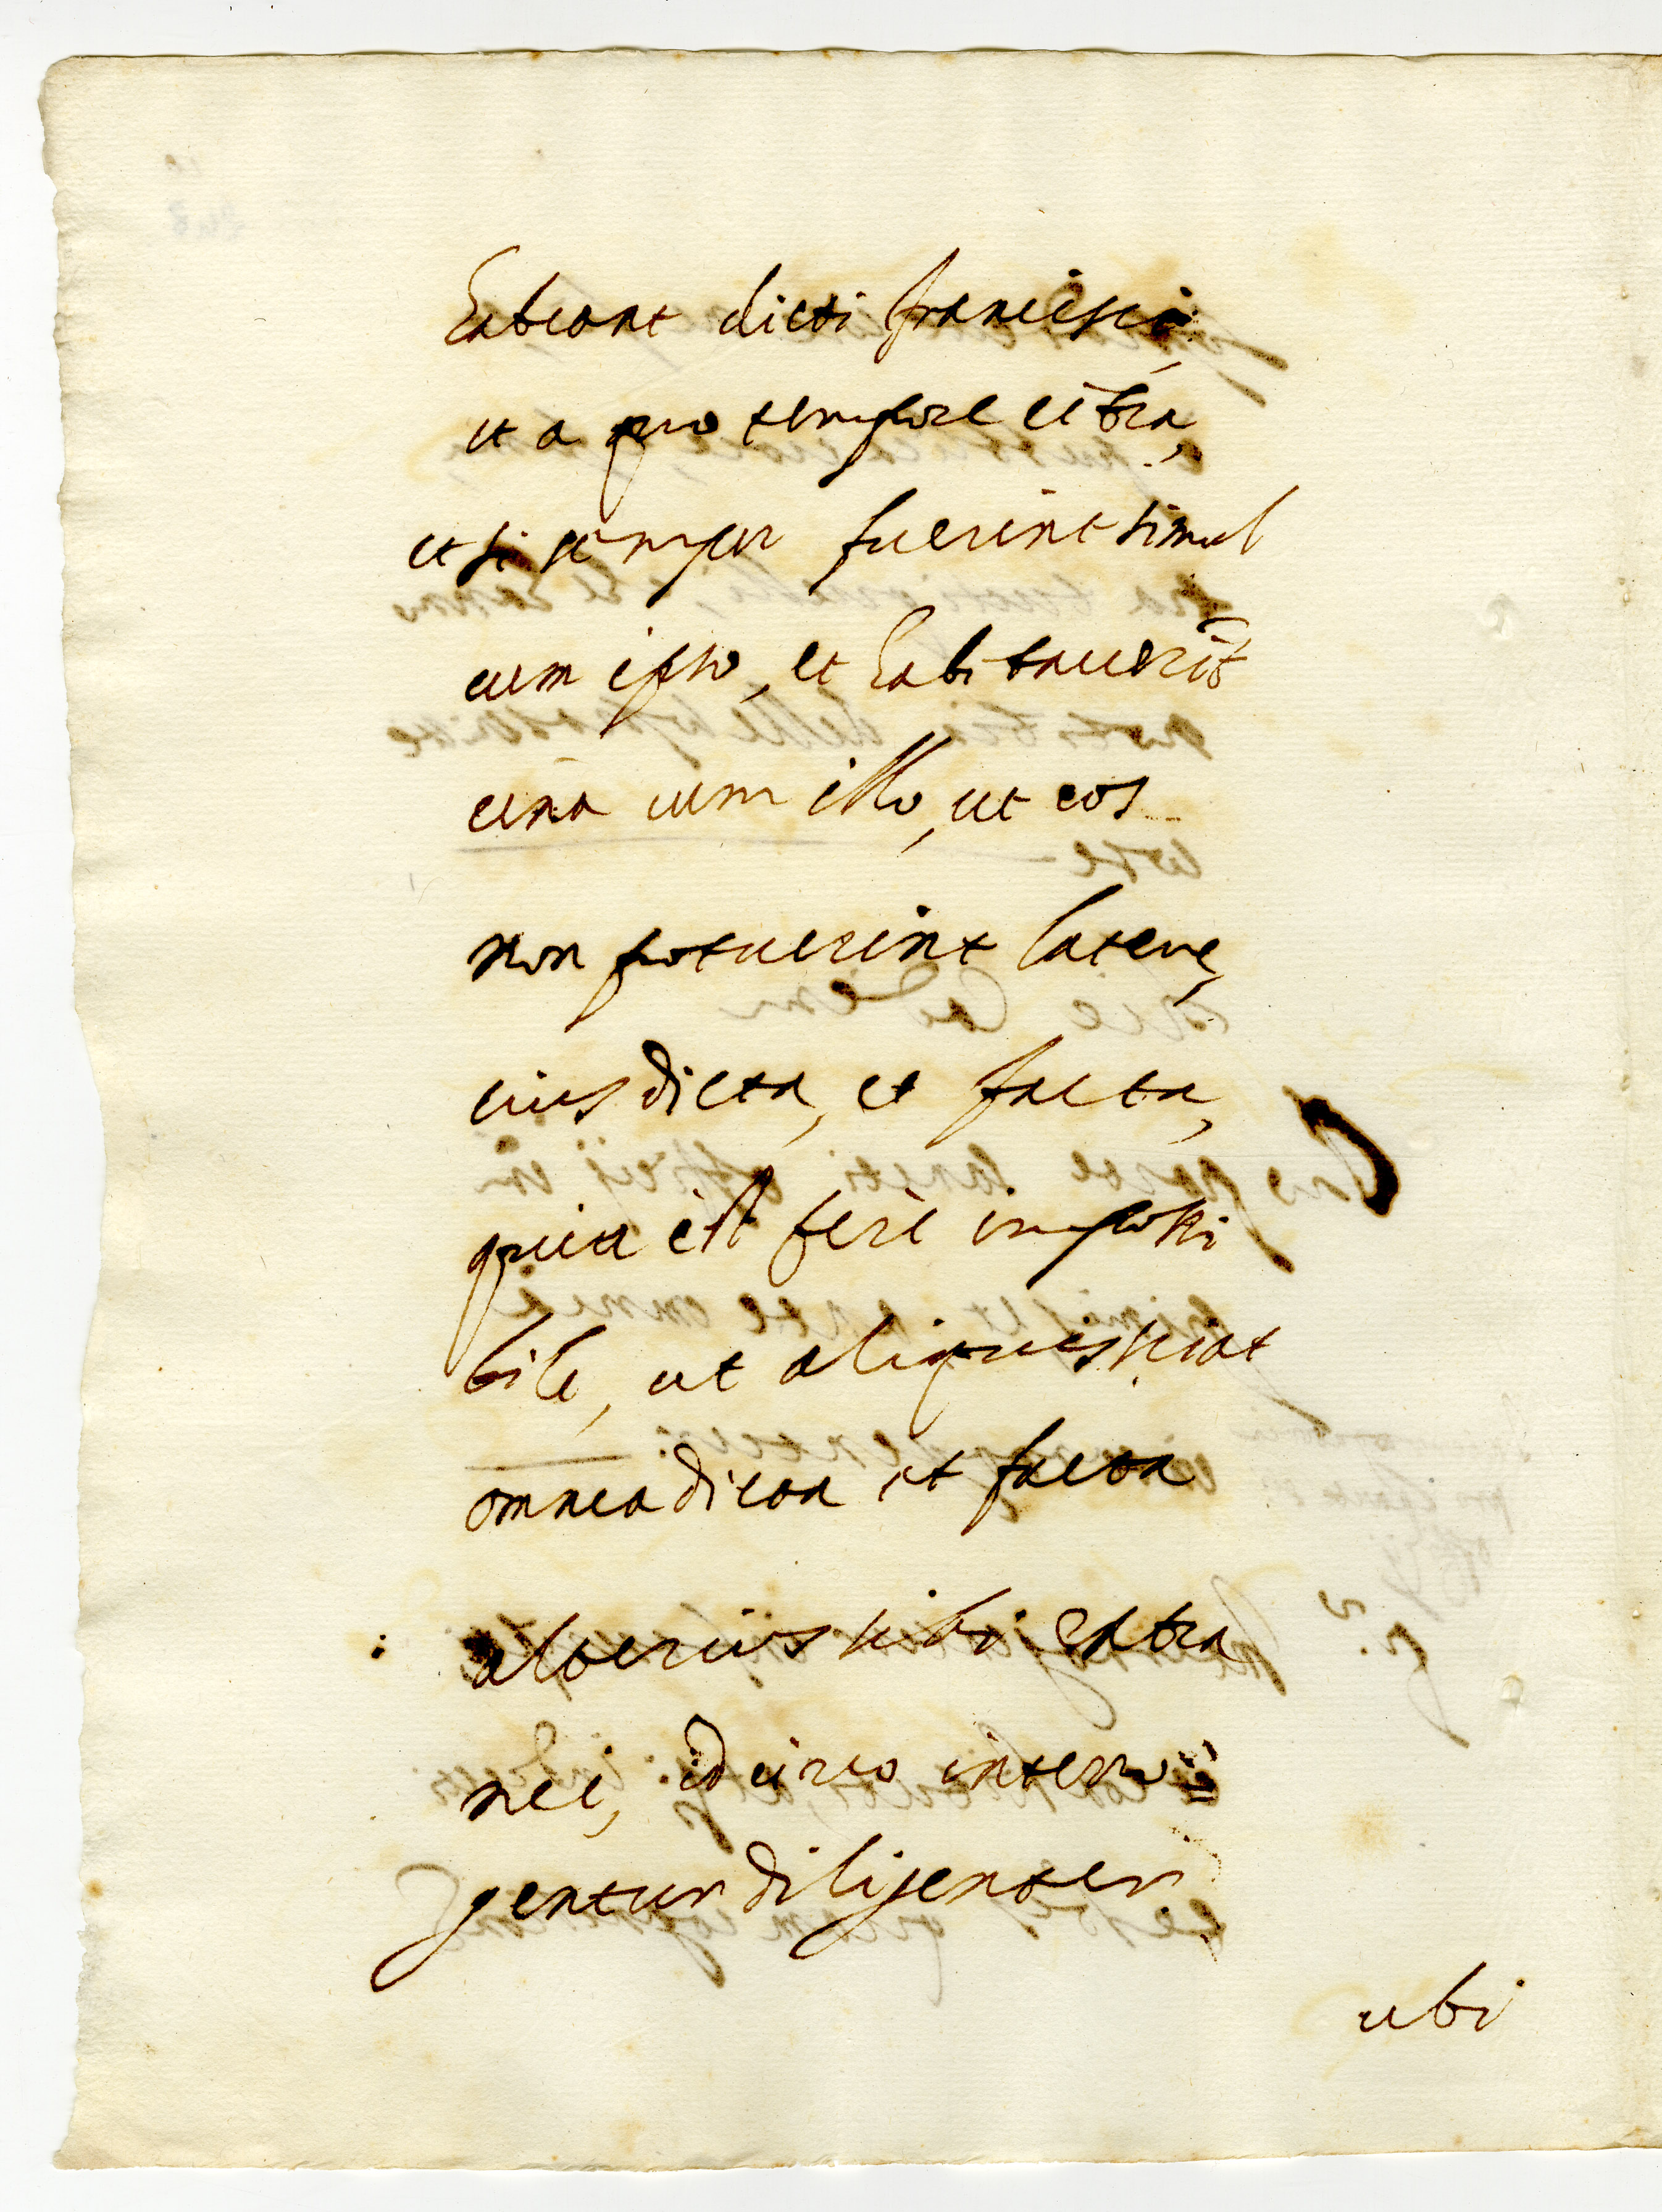 habeant dicti francisci,
et a quo tempore citra,
et si semper fuerint simul
cum ipso, et habitauerĩt
una cum illo, ut eos
non potuerint latere,
eius dicta, et facta,
quia est ferè impossi
bile, ut aliquis sciat
omnia dicta et facta
alterius sibi extra
nei, idcirco interro=
gentur diligenter
ubi